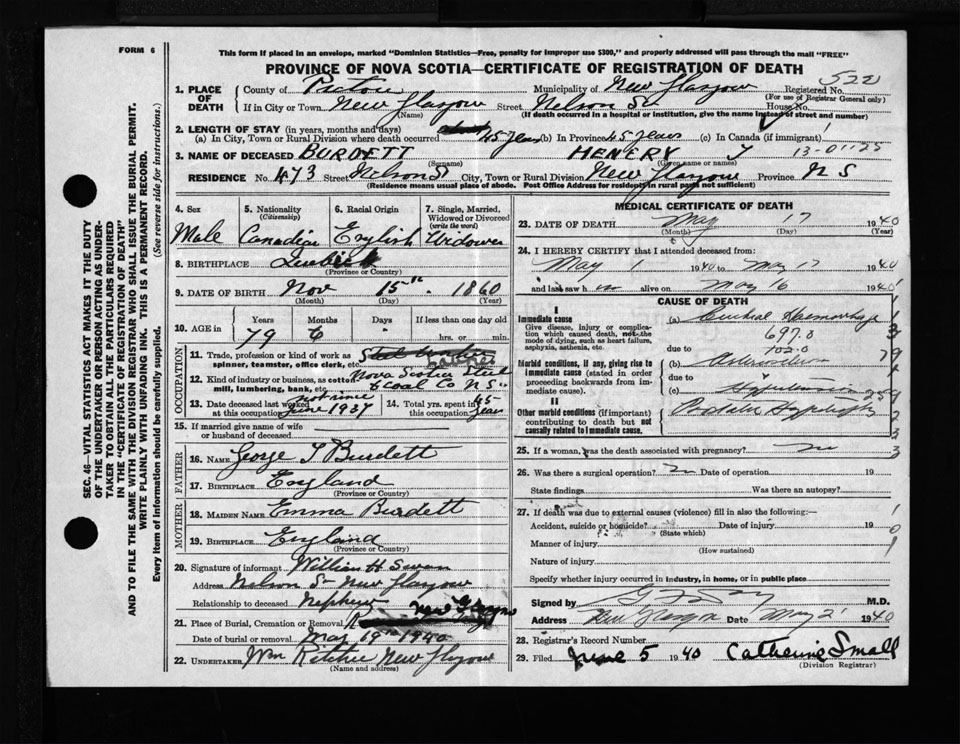 FORM 6
This form if placed in an envelope, marked "Dominion Statistics—Free, penalty for improper use $300," and properly addressed will pass through the mail "FREE"
PROVINCE OF NOVA SCOTIA—CERTIFICATE OF REGISTRATION OF DEATH
522
1. PLACE OF DEATH
County of Pictou Municipality of New Glasgow Registered No.
(For use of Registrar General only)
If in City or Town New Glasgow Street Nelson St House No.
(Name) (If death occurred in a hospital or institution, give the name instead of street and number)
2. LENGTH OF STAY (in years, months and days)
(a) In City, Town or Rural Division where death occurred 45 years (b) In Province 45 years (c) In Canada (if immigrant)
3. NAME OF DECEASED BURDETT HENERY 13-01125
(Surname) (Given name or names)
RESIDENCE No. 473 Street Nelson St City, Town or Rural Division New Glasgow Province N S
(Residence means usual place of abode. Post Office Address for residents in rural parts not sufficient)
SEC. 46—VITAL STATISTICS ACT MAKES IT THE DUTY
OF THE UNDERTAKER OR PERSON ACTING AS UNDER-
TAKER TO OBTAIN ALL THE PARTICULARS REQUIRED
IN THE "CERTIFICATE OF REGISTRATION OF DEATH"
AND TO FILE THE SAME WITH THE DIVISION REGISTRAR WHO SHALL ISSUE THE BURIAL PERMIT.
WRITE PLAINLY WITH UNFADING INK. THIS IS A PERMANENT RECORD.
Every item of information should be carefully supplied. (See reverse side for instructions.)
4. Sex Male
5. Nationality (Citizenship) Canadian
6. Racial Origin English
7. Single, Married, Widowed or Divorced (write the word) Widower
8. BIRTHPLACE
(Province or Country)
9. DATE OF BIRTH Nov 15th 1860
(Month) (Day) (Year)
10. AGE in Years Months Days If less than one day
79 6 hrs. or min.
OCCUPATION
11. Trade, profession or kind of work as spinner, teamster, office clerk, etc.
12. Kind of industry or business, as cotton mill, lumbering, bank, etc. Nova Scotia Steel & Coal Co N.S.
13. Date deceased last worked at this occupation not since June 1937
14. Total yrs. spent in this occupation 45 years
15. If married give name of wife or husband of deceased
FATHER
16. Name George Burdett
17. BIRTHPLACE England
(Province or Country)
MOTHER
18. MAIDEN NAME Emma Burdett
19. BIRTHPLACE England
(Province or Country)
20. Signature of informant William H Swan
Address Nelson St New Glasgow
Relationship to deceased Nephew
21. Place of Burial, Cremation or Removal New Glasgow
Date of burial or removal May 19th 1940
22. UNDERTAKER Wm Ritchie New Glasgow
(Name and address)
MEDICAL CERTIFICATE OF DEATH
23. DATE OF DEATH May 17 1940
(Month) (Day) (Year)
24. I HEREBY CERTIFY that I attended deceased from:
May 1 1940 to May 17 1940
and last saw him alive on May 16 1940
CAUSE OF DEATH
I
Immediate cause
Give disease, injury or complication which caused death, not the mode of dying, such as heart failure, asphyxia, asthenia, etc.
(a) Cerebral Haemorrhage
697.0
due to 102.0
Morbid conditions, if any, giving rise to immediate cause (stated in order proceeding backwards from immediate cause).
(b)
due to
(c) Hypertension
II
Other morbid conditions (if important) contributing to death but not causally related to immediate cause.
25. If a woman, was the death associated with pregnancy? no
26. Was there a surgical operation? no Date of operation 19
State findings Was there an autopsy?
27. If death was due to external causes (violence) fill in also the following:—
Accident, suicide or homicide? Date of injury 19
(State which)
Manner of injury
(How sustained)
Nature of injury
Specify whether injury occurred in industry, in home, or in public place
Signed by G F Day M.D.
Address New Glasgow Date May 1940
28. Registrar's Record Number
29. Filed June 5 1940 Catherine Small
(Division Registrar)